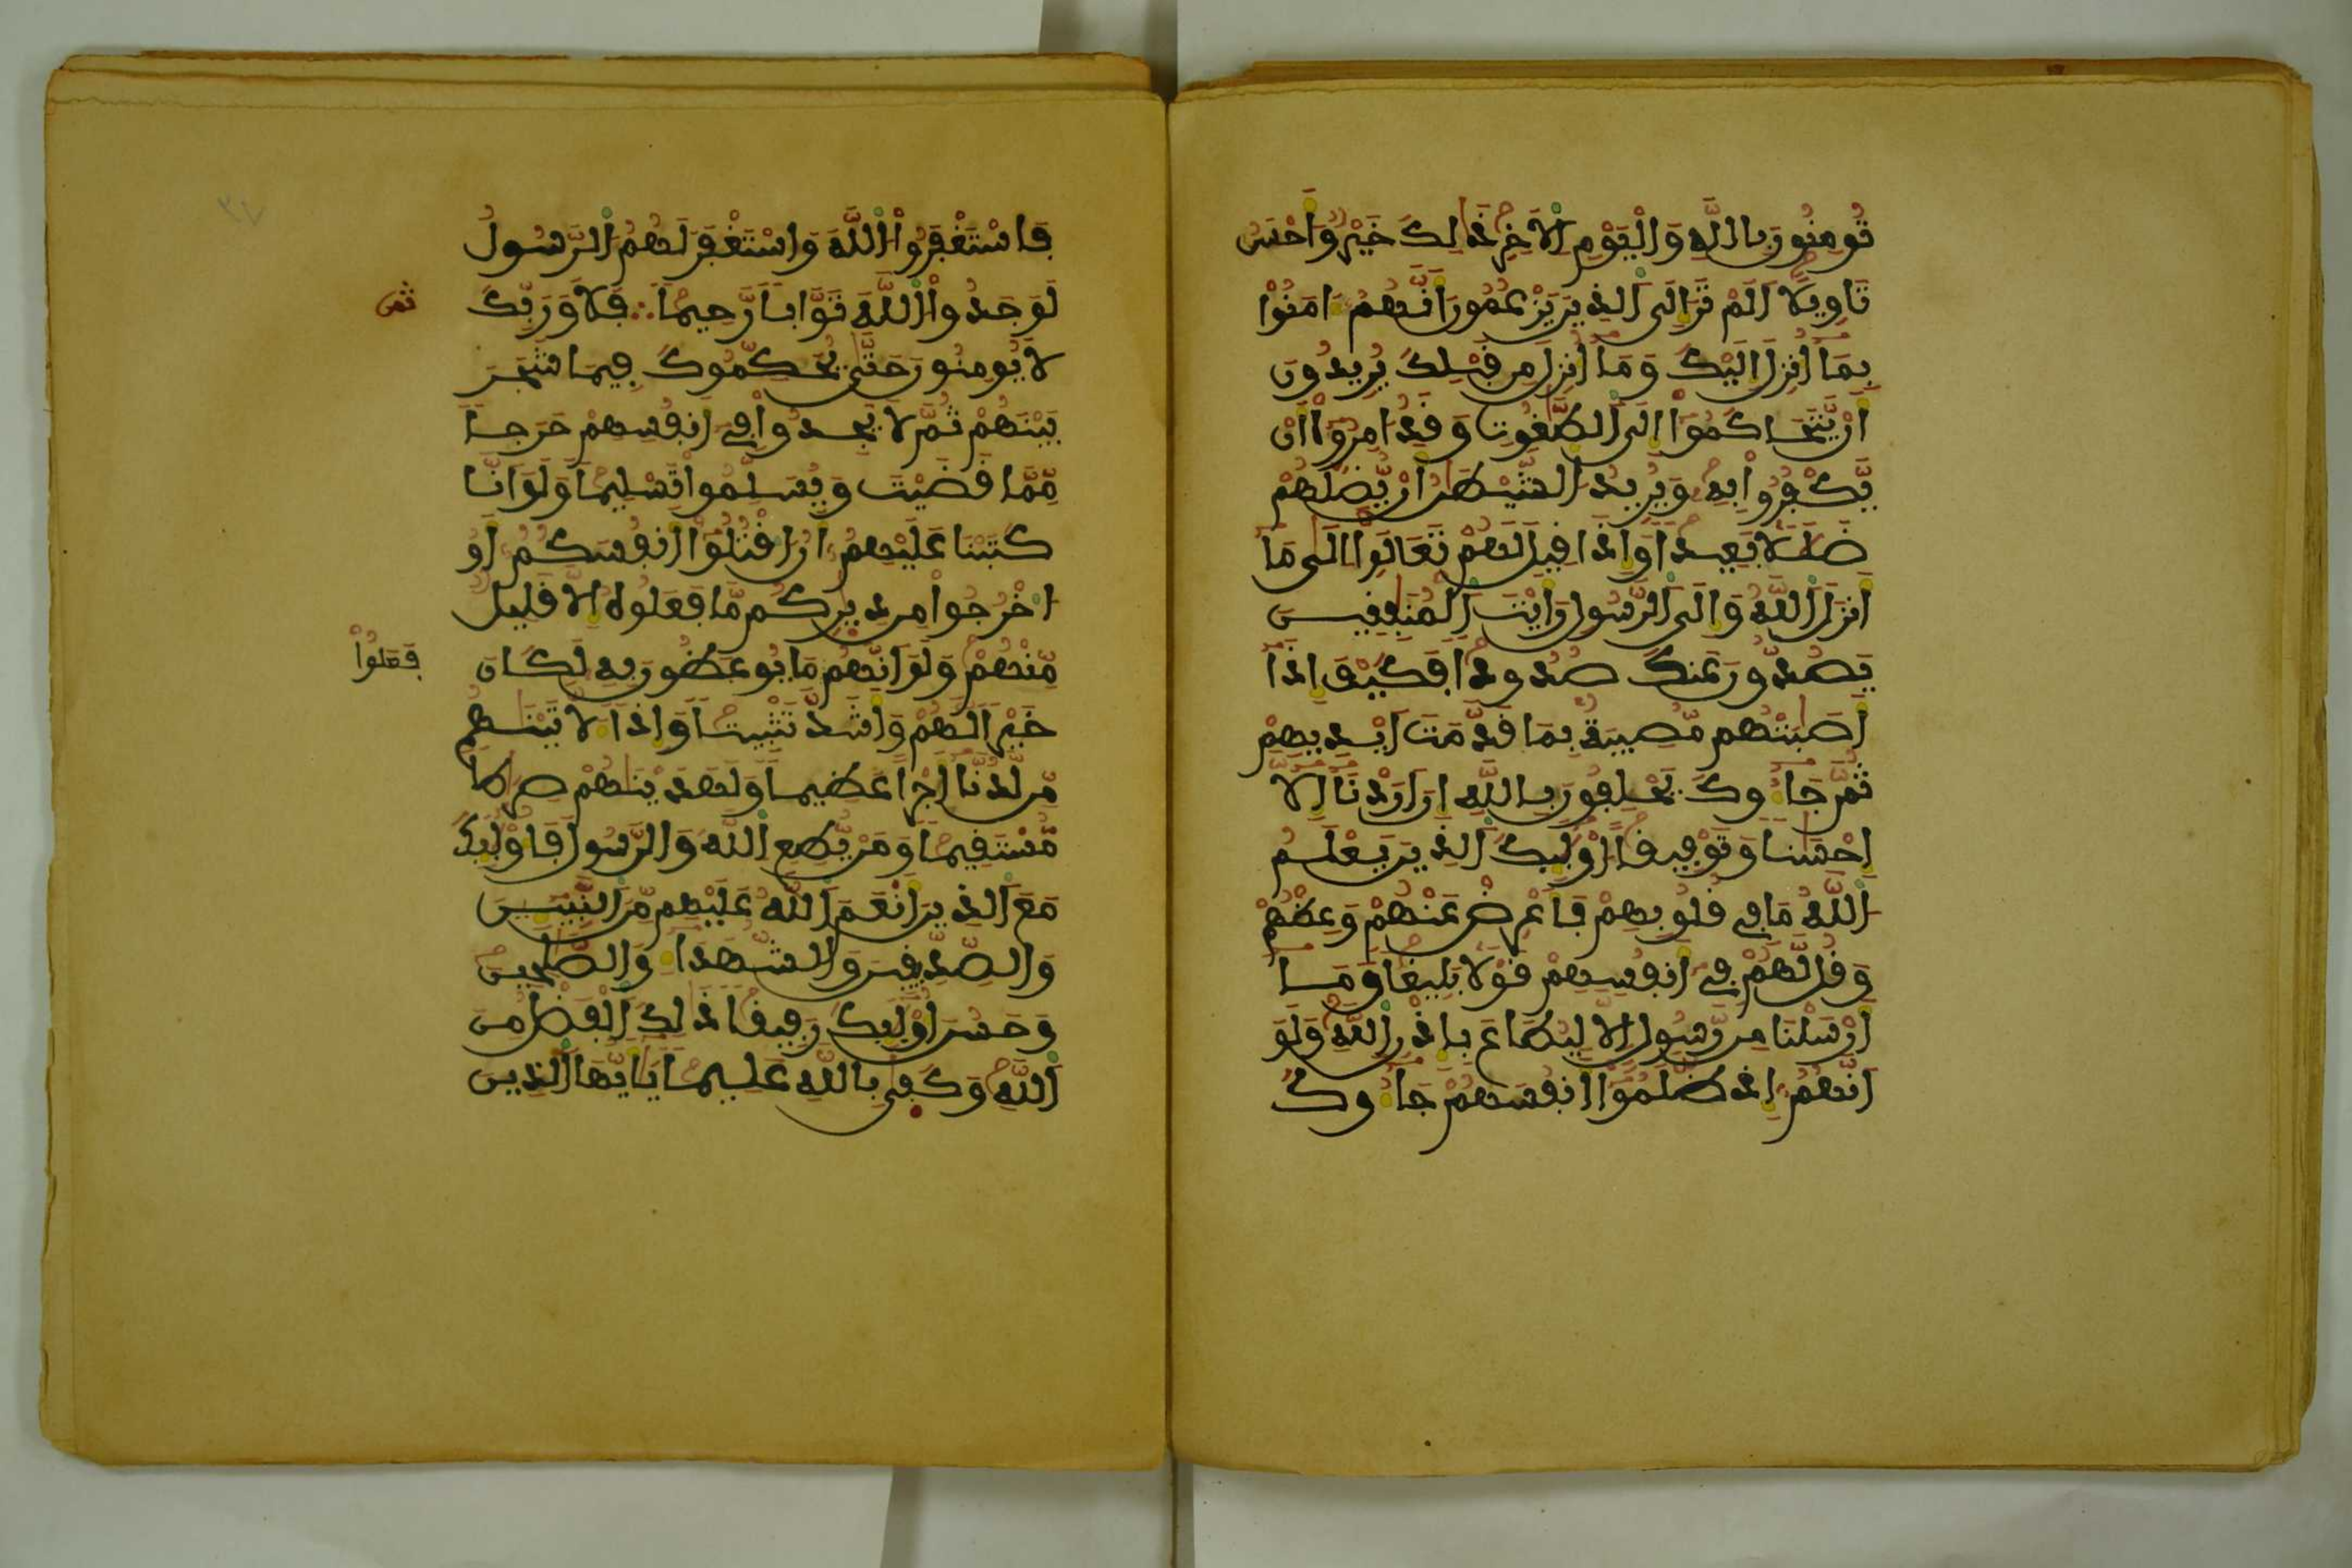 تُومِنُونَ بِاللَّهِ وَالْيَوْمِ الَاخِرِ ذَٰلِكَ خَيْرٌ وَأَحْسَنُ
تَاوِيلًا اَلَمْ تَرَ إِلَى الذِينَ يَزْعُمُونَ أَنَّهُمُ ءَامَنُواْ
بِمَا أُنزِلَ إِلَيْكَ وَمَا أُنزِلَ مِن قَبْلِكَ يُرِيدُونَ
أَنْ يَّتَحَاكَمُواْ إِلَى الطَّٰغُوتِ وَقَدُ امِرُواْ أَن
يَّكْفُرُواْ بِهِ وَيُرِيدُ الشَّيْطَٰنُ أَنْ يُّضِلَّهُمْ
ضَلَٰلًا بَعِيدًا وَإِذَا قِيلَ لَهُمْ تَعَالَوِاْ الَىٰ مَا
أَنزَلَ اللَّهُ وَإِلَى الرَّسُولِ رَأَيْتَ الْمُنَٰفِقِينَ
يَصُدُّونَ عَنكَ صُدُودًا فَكَيْفَ إِذَا
أَصَٰبَتْهُم مُّصِيبَةٌ بِمَا قَدَّمَتَ ايْدِيهِمْ
ثُمَّ جَاءُوكَ يَحْلِفُونَ بِاللَّهِ إِنَ ارَدْنَا إِلَّا
إِحْسَٰنًا وَتَوْفِيقًا اوْلَٰئِكَ الذِينَ يَعْلَمُ
اللَّهُ مَا فِي قُلُوبِهِمْ فَأَعْرِضْ عَنْهُمْ وَعِظْهُمْ
وَقُل لَّهُمْ فِي أَنفُسِهِمْ قَوْلًا بَلِيغًا وَمَا
أَرْسَلْنَا مِن رَّسُولٍ الَّا لِيُطَاعَ بِإِذْنِ اللَّهِ وَلَوَ
انَّهُمُ إِذ ظَّلَمُواْ أَنفُسَهُمْ جَاءُوكَ
فَاسْتَغْفَرُواْ اللَّهَ وَاسْتَغْفَرَ لَهُمُ الرَّسُولُ
لَوَجَدُواْ اللَّهَ تَوَّابًا رَّحِيمًا فَلَا وَرَبِّكَ
ثمن
لَا يُومِنُونَ حَتَّىٰ يُحَكِّمُوكَ فِيمَا شَجَرَ
بَيْنَهُمْ ثُمَّ لَا يَجِدُواْ فِي أَنفُسِهِمْ حَرَجًا
مِّمَّا قَضَيْتَ وَيُسَلِّمُواْ تَسْلِيمًا وَلَوَ انَّا
كَتَبْنَا عَلَيْهِمُ أَنُ اقْتُلُواْ أَنفُسَكُمُ أَوُ
اخْرُجُواْ مِن دِيَٰرِكُم مَّا فَعَلُوهُ إِلَّا قَلِيلٌ
مِّنْهُمْ وَلَوَ انَّهُم مَا يُوعَظُونَ بِهِ لَكَانَ
فَعَلُواْ
خَيْرًا لَّهُمْ وَأَشَدَّ تَثْبِيتًا وَإِذًا لَّأَتَيْنَٰهُم
مِّن لَّدُنَّا أَجْرًا عَظِيمًا وَلَهَدَيْنَٰهُمْ صِرَٰطًا
مُّسْتَقِيمًا وَمَنْ يُّطِعِ اللَّهَ وَالرَّسُولَ فَأُوْلَٰئِكَ
مَعَ الذِينَ أَنْعَمَ اللَّهُ عَلَيْهِم مِّنَ النَّبِيـِٕينَ
وَالصِّدِّيقِينَ وَالشُّهَدَاءِ وَالصَّٰلِحِينَ
وَحَسُنَ أُوْلَٰئِكَ رَفِيقًا ذَٰلِكَ الْفَضْلُ مِنَ
اللَّهِ وَكَفَىٰ بِاللَّهِ عَلِيمًا يَا أَيُّهَا الذِينَ